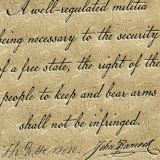 A well-regulated militia
being necessary to the security
of a free state, the right of the
people to keep and bear arms
shall not be infringed.
John Hancock